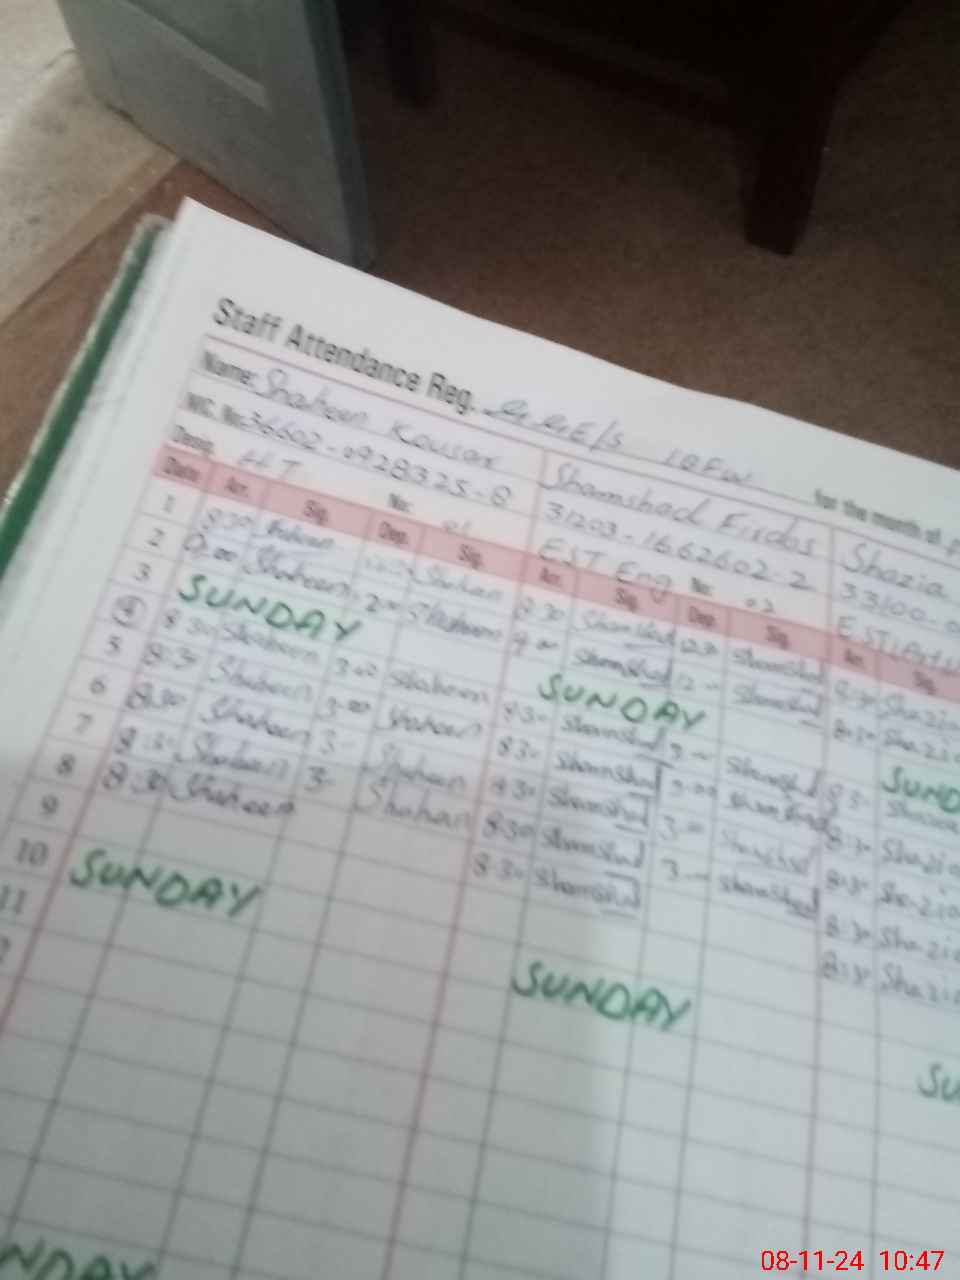 Staff Attendance Reg. G.G.E/s 18F.W for the month of
Name: Shaheen Kousar Shamshad Firdos Shazia
N/C. No. 36602-0928325-8 31203-1662602-2 33100-
Desig. H T No: 01 EST Eng No: 02 EST
Date Arr. Sig. Dep. Sig. Arr. Sig. Dep. Sig. Arr. Sig.
1 8:30 Shaheen Shaheen 8:30 Shamshad 12:30 Shamshad 8:30 Shazia
2 Shaheen Shaheen 9 00 Shamshad 12 - Shamshad 8:30 Shazia
3 SUNDAY SUNDAY SUND
4 8:30 Shaheen 3:00 Shaheen 8:30 Shamshad 3 - Shamshad 8:30 Shazia
5 8:30 Shaheen 3:00 Shaheen 8:30 Shamshad 3:00 Shamshad 8:30 Shazia
6 8:30 Shaheen 3 - Shaheen 8:30 Shamshad 3 - Shamshad 8:30 Shazia
7 8:30 Shaheen 3 - Shaheen 8:30 Shamshad 3 - Shamshad 8:30 Shazia
8 8:30 Shaheen 8:30 Shamshad 8:30 Shazia
9
10 SUNDAY SUNDAY SU
11
2
NDAY
08-11-24 10:47